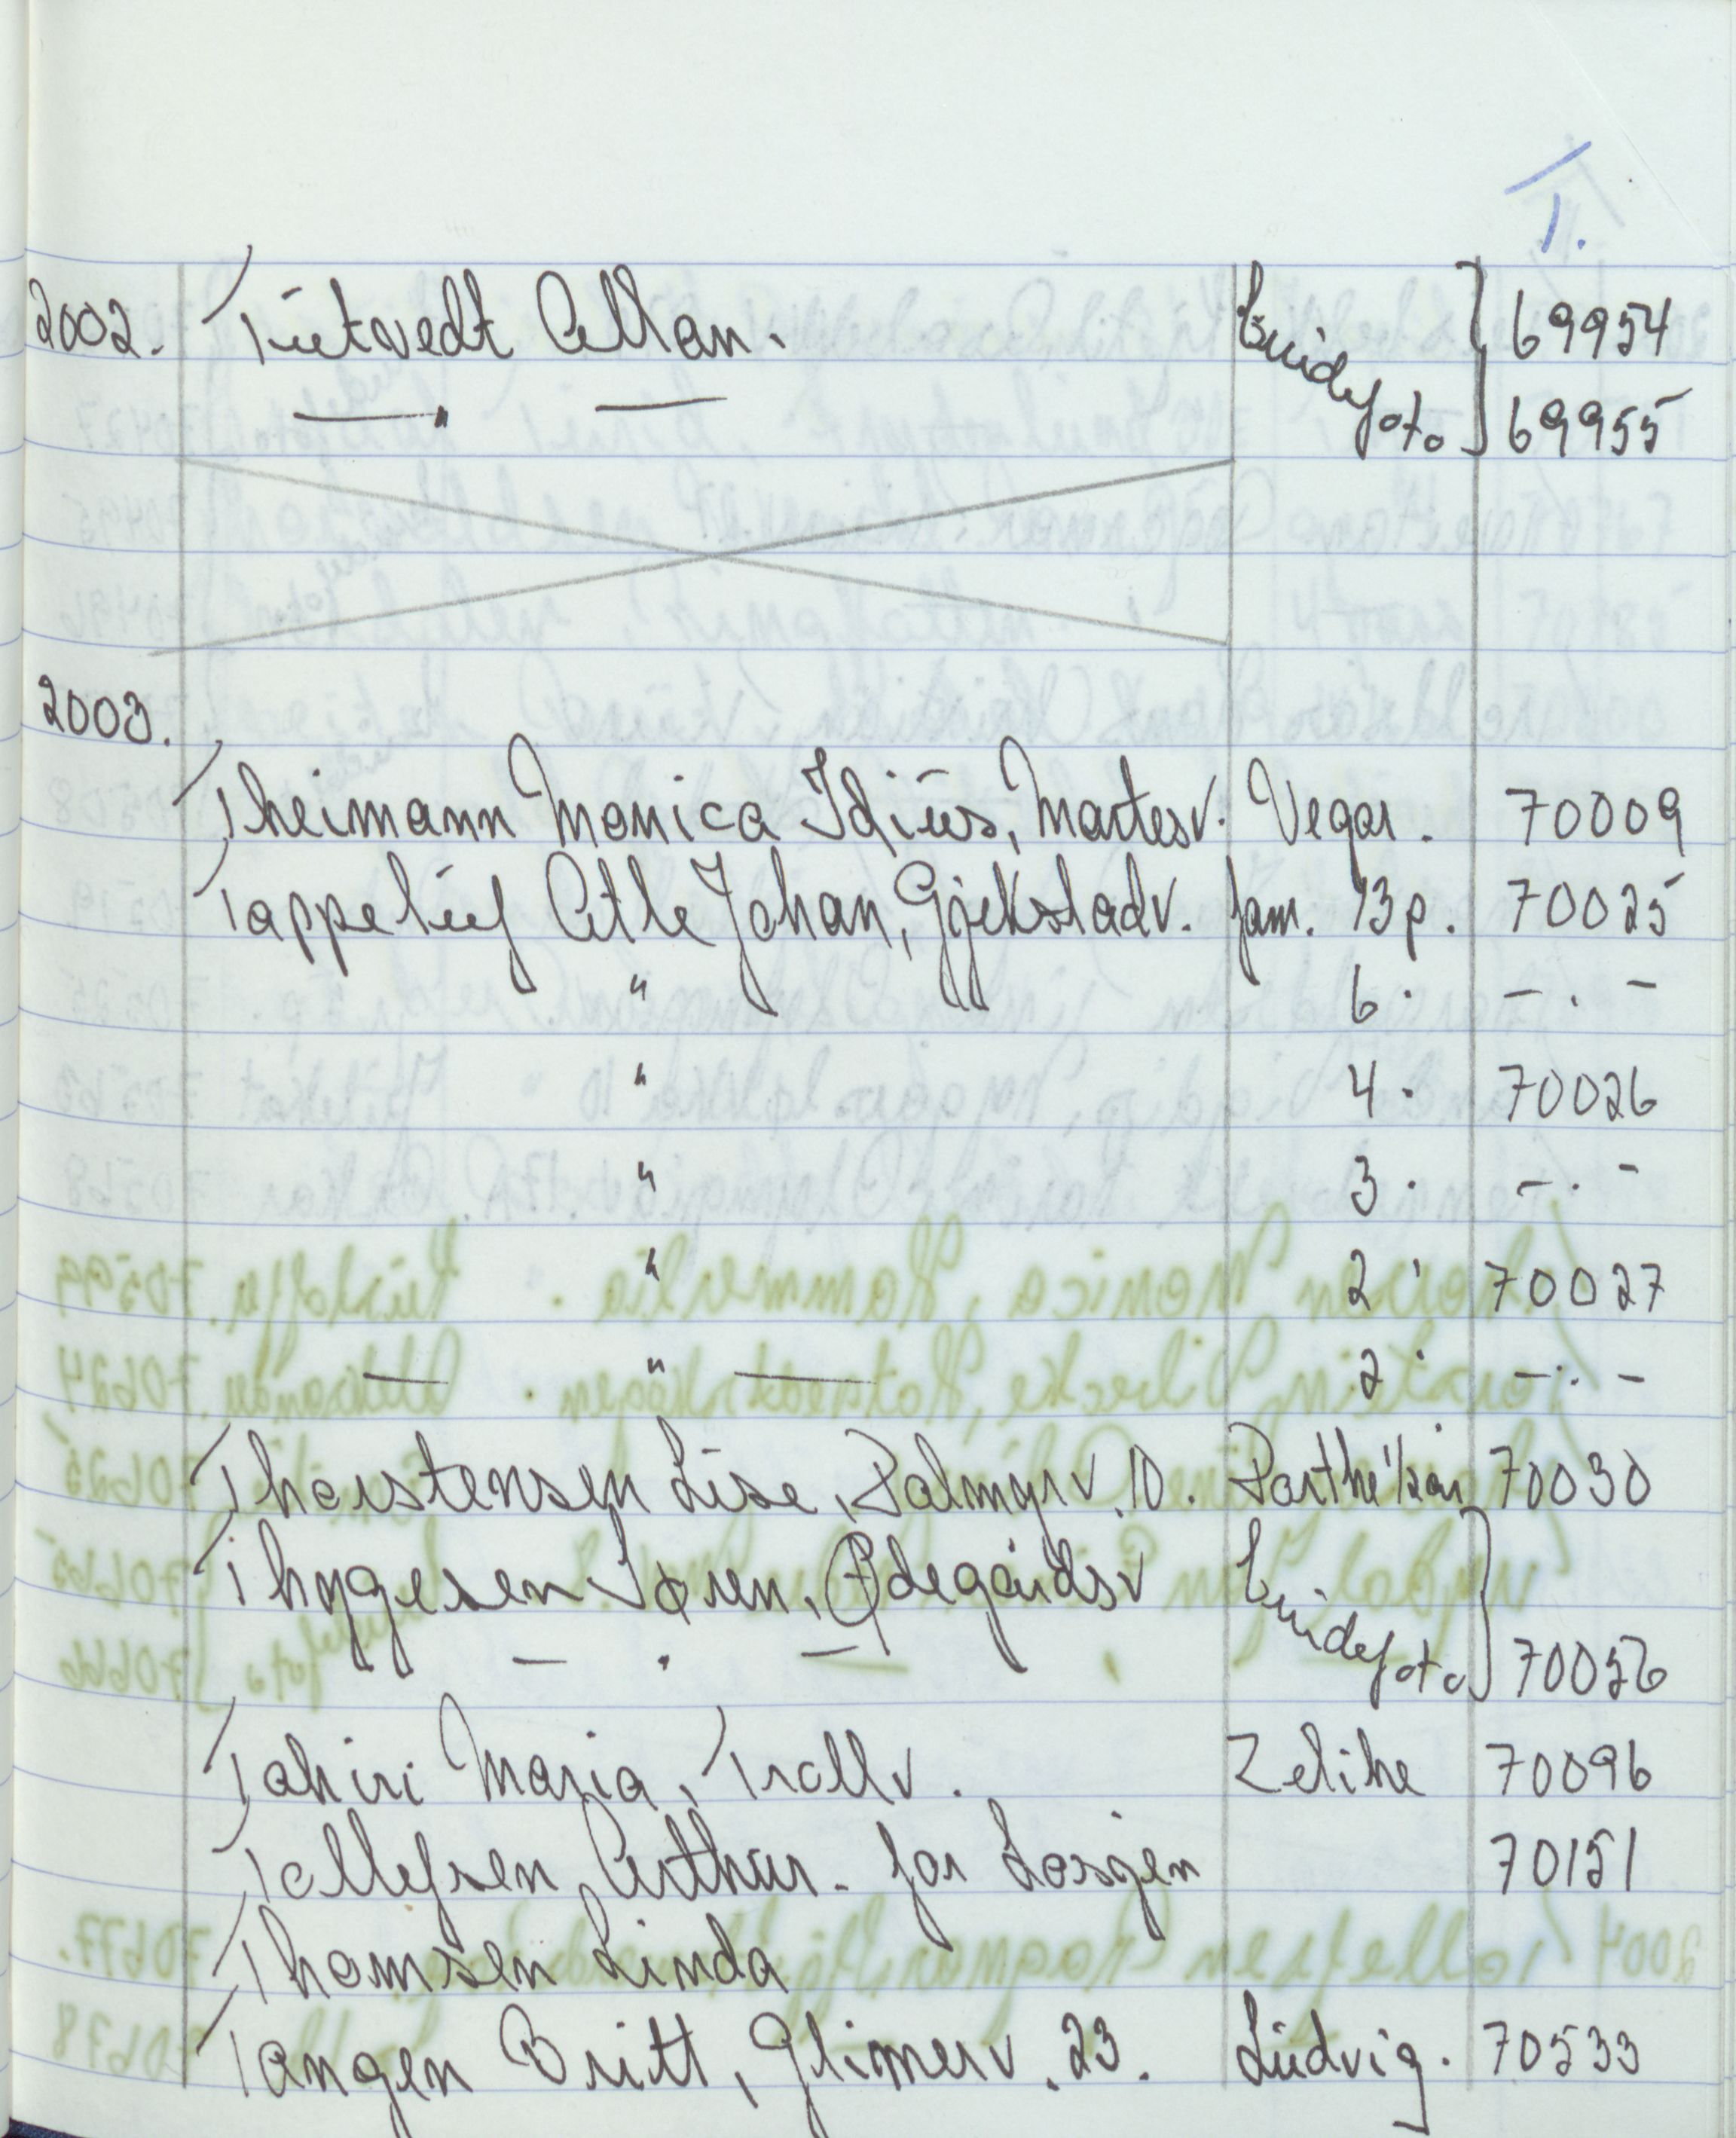 T.
2002. Tutvedt Allan. Brudefoto } 69954
—„— 69955
2003.
Theimann Monica Idius, Martesv. Vegar. 70009
Tappeluf Atle Johan, Gjekstadv. fam. 13 p. 70025
" 6 · – . –
" 4 · 70026
" 3 · – . –
" 2 · 70027
— " — 2 · – . –
Thorstensen Lise, Palmyrv. 10. Parthe'kar 70030
Thygesen Søren, Ødegårdsv Brudefoto }
– . – 70056
Tahiri Maria, Trollv. Zelihe 70096
Tollefsen Arthur. for Losgen 70151
Thomsen Linda
Tangen Britt, Glimerv. 23. Ludvig. 70533